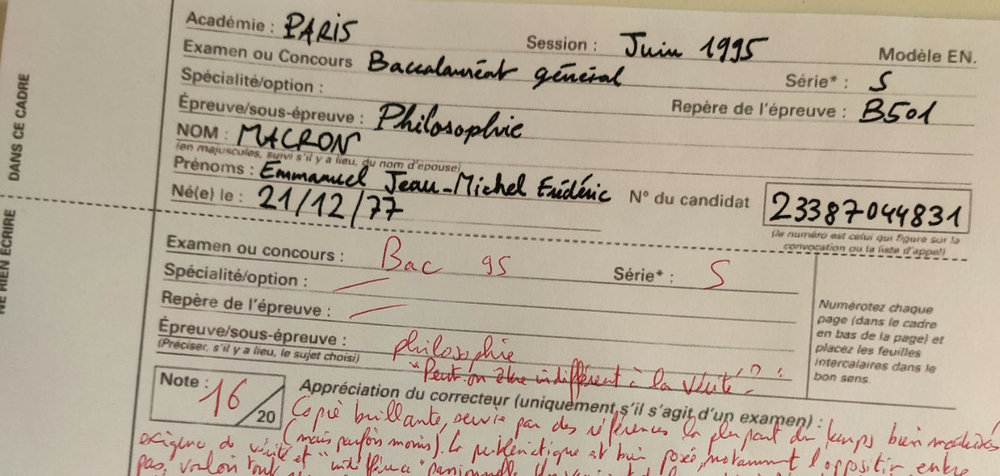 Académie : PARIS Session : Juin 1995 Modèle EN.
Examen ou Concours Baccalauréat général Série* : S
Spécialité/option : Repère de l'épreuve : B501
Épreuve/sous-épreuve : Philosophie
NOM : MACRON
(en majuscules, suivi s'il y a lieu, du nom d'épouse)
Prénoms : Emmanuel Jean-Michel Frédéric N° du candidat 23387044831
Né(e) le : 21/12/77
(le numéro est celui qui figure sur la
convocation ou la liste d'appel)
DANS CE CADRE
NE RIEN ÉCRIRE
Examen ou concours : Bac 95 Série* : S
Spécialité/option :
Repère de l'épreuve :
Épreuve/sous-épreuve : philosophie
(Préciser, s'il y a lieu, le sujet choisi) "Peut-on être indifférent à la vérité ?"
Numérotez chaque
page (dans le cadre
en bas de la page) et
placez les feuilles
intercalaires dans le
bon sens.
Note : 16 /20
Appréciation du correcteur (uniquement s'il s'agit d'un examen) :
Copie brillante, servie par des références la plupart du temps bien
(mais parfois moins). La problématique est bien posée, notamment l'opposition entre
exigence de vérité et "indifférence"
pas,